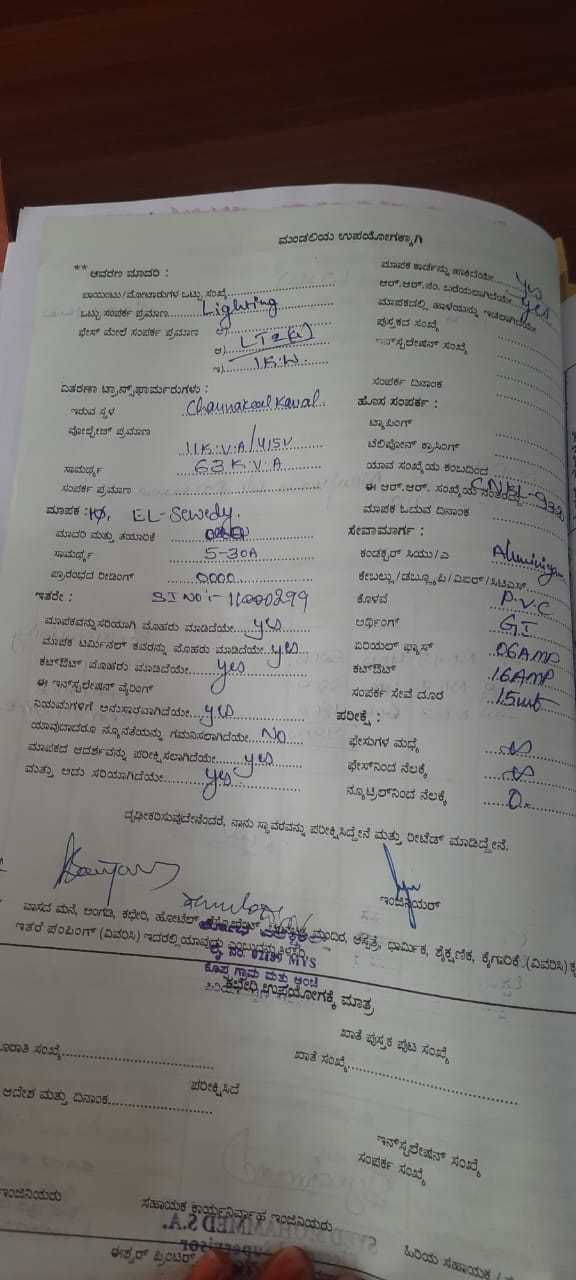 ಮಂಡಲಿಯ ಉಪಯೋಗಕ್ಕಾಗಿ
** ಆವರಣ ಮಾದರಿ :
ಪಾಯಿಂಟು/ಮೋಟಾರುಗಳ ಒಟ್ಟು ಸಂಖ್ಯೆ
ಒಟ್ಟು ಸಂಪರ್ಕ ಪ್ರಮಾಣ Lighting
ಫೇಸ್ ಮೇಲೆ ಸಂಪರ್ಕ ಪ್ರಮಾಣ ಅ)
ಆ) LT2(a)
ಇ) 1K.W
ವಿತರಣಾ ಟ್ರಾನ್ಸ್‌ಫಾರ್ಮರುಗಳು :
ಇರುವ ಸ್ಥಳ
ವೋಲ್ಟೇಜ್ ಪ್ರಮಾಣ 11K.V.A/415V
ಸಾಮರ್ಥ್ಯ 63K.V.A
ಸಂಪರ್ಕ ಪ್ರಮಾಣ
ಮಾಪಕ : 1Φ, EL-Sewedy.
ಮಾದರಿ ಮತ್ತು ತಯಾರಿಕೆ
ಸಾಮರ್ಥ್ಯ 5-30A
ಪ್ರಾರಂಭದ ರೀಡಿಂಗ್ 0000
ಇತರೇ : SI No:- 11000299
ಮಾಪಕವನ್ನು ಸರಿಯಾಗಿ ಮೊಹರು ಮಾಡಿದೆಯೇ yes
ಮಾಪಕ ಟರ್ಮಿನಲ್ ಕವರನ್ನು ಮೊಹರು ಮಾಡಿದೆಯೇ yes
ಕಟ್‌ಔಟ್ ಮೊಹರು ಮಾಡಿದೆಯೇ yes
ಈ ಇನ್‌ಸ್ಟಲೇಷನ್ ವೈರಿಂಗ್
ನಿಯಮಗಳಿಗೆ ಅನುಸಾರವಾಗಿದೆಯೇ yes
ಯಾವುದಾದರೂ ನ್ಯೂನತೆಯನ್ನು ಗಮನಿಸಲಾಗಿದೆಯೇ No
ಮಾಪಕದ ಆದರ್ಶವನ್ನು ಪರೀಕ್ಷಿಸಲಾಗಿದೆಯೇ yes
ಮತ್ತು ಅದು ಸರಿಯಾಗಿದೆಯೇ yes
ಮಾಪಕ ಕಾರ್ಡನ್ನು ಹಾಕಿದೆಯೇ yes
ಆರ್.ಆರ್.ನಂ. ಬರೆಯಲಾಗಿದೆಯೇ yes
ಮಾಪಕದಲ್ಲಿ ಹಾಳೆಯನ್ನು ಇಡಲಾಗಿದೆಯೇ
ಪುಸ್ತಕದ ಸಂಖ್ಯೆ
ಇನ್‌ಸ್ಟಲೇಷನ್ ಸಂಖ್ಯೆ
ಸಂಪರ್ಕ ದಿನಾಂಕ
ಹೊಸ ಸಂಪರ್ಕ :
ಟ್ಯಾಪಿಂಗ್
ಟೆಲಿಫೋನ್ ಕ್ರಾಸಿಂಗ್
ಯಾವ ಸಂಖ್ಯೆಯ ಕಂಬದಿಂದ
ಈ ಆರ್.ಆರ್. ಸಂಖ್ಯೆಯ ನಂತರದ್ದು
ಮಾಪಕ ಓದುವ ದಿನಾಂಕ
ಸೇವಾಮಾರ್ಗ :
ಕಂಡಕ್ಟರ್ ಸಿಯು/ಎ Aluminiyam
ಕೇಬಲ್ಲು/ಡಬ್ಲ್ಯೂಪಿ/ಎಐಆರ್/ಸಿಟಿಎಸ್
ಕೊಳವೆ P.V.C
ಅರ್ಥಿಂಗ್ GI
ಏರಿಯಲ್ ಫ್ಯೂಸ್ 06AMP
ಕಟ್‌ಔಟ್ 16AMP
ಸಂಪರ್ಕ ಸೇವೆ ದೂರ 15mt
ಪರೀಕ್ಷೆ :
ಫೇಸುಗಳ ಮಧ್ಯೆ ∞
ಫೇಸ್‌ನಿಂದ ನೆಲಕ್ಕೆ ∞
ನ್ಯೂಟ್ರಲ್‌ನಿಂದ ನೆಲಕ್ಕೆ 0.
ದೃಢೀಕರಿಸುವುದೇನೆಂದರೆ, ನಾನು ಸ್ಥಾವರವನ್ನು ಪರೀಕ್ಷಿಸಿದ್ದೇನೆ ಮತ್ತು ರೀಟೆಡ್ ಮಾಡಿದ್ದೇನೆ.
ಇಂಜಿನಿಯರ್
ವಾಸದ ಮನೆ, ಅಂಗಡಿ, ಕಛೇರಿ, ಹೋಟೆಲ್ ಮಂದಿರ, ಆಸ್ಪತ್ರೆ, ಧಾರ್ಮಿಕ, ಶೈಕ್ಷಣಿಕ, ಕೈಗಾರಿಕೆ (ವಿವರಿಸಿ)
ಇತರೆ ಪಂಪಿಂಗ್ (ವಿವರಿಸಿ) ಇದರಲ್ಲಿ ಯಾವುದು ಎಂಬುದನ್ನು ತಿಳಿಸಿ.
ಗ್ರಾಮ ಮತ್ತು ಅಂಚೆ
ಕಛೇರಿ ಉಪಯೋಗಕ್ಕೆ ಮಾತ್ರ
ಖಾತೆ ಪುಸ್ತಕ ಪುಟ ಸಂಖ್ಯೆ
ಖಾತೆ ಸಂಖ್ಯೆ
ಪರೀಕ್ಷಿಸಿದೆ
ಆದೇಶ ಮತ್ತು ದಿನಾಂಕ
ಇನ್‌ಸ್ಟಲೇಷನ್ ಸಂಖ್ಯೆ
ಸಂಪರ್ಕ ಸಂಖ್ಯೆ
ಇಂಜಿನಿಯರು ಸಹಾಯಕ ಕಾರ್ಯನಿರ್ವಾಹ ಇಂಜಿನಿಯರು ಹಿರಿಯ ಸಹಾಯಕ
SYED MOHAMMED S.A.
ಈಶ್ವರ್ ಪ್ರಿಂಟರ್